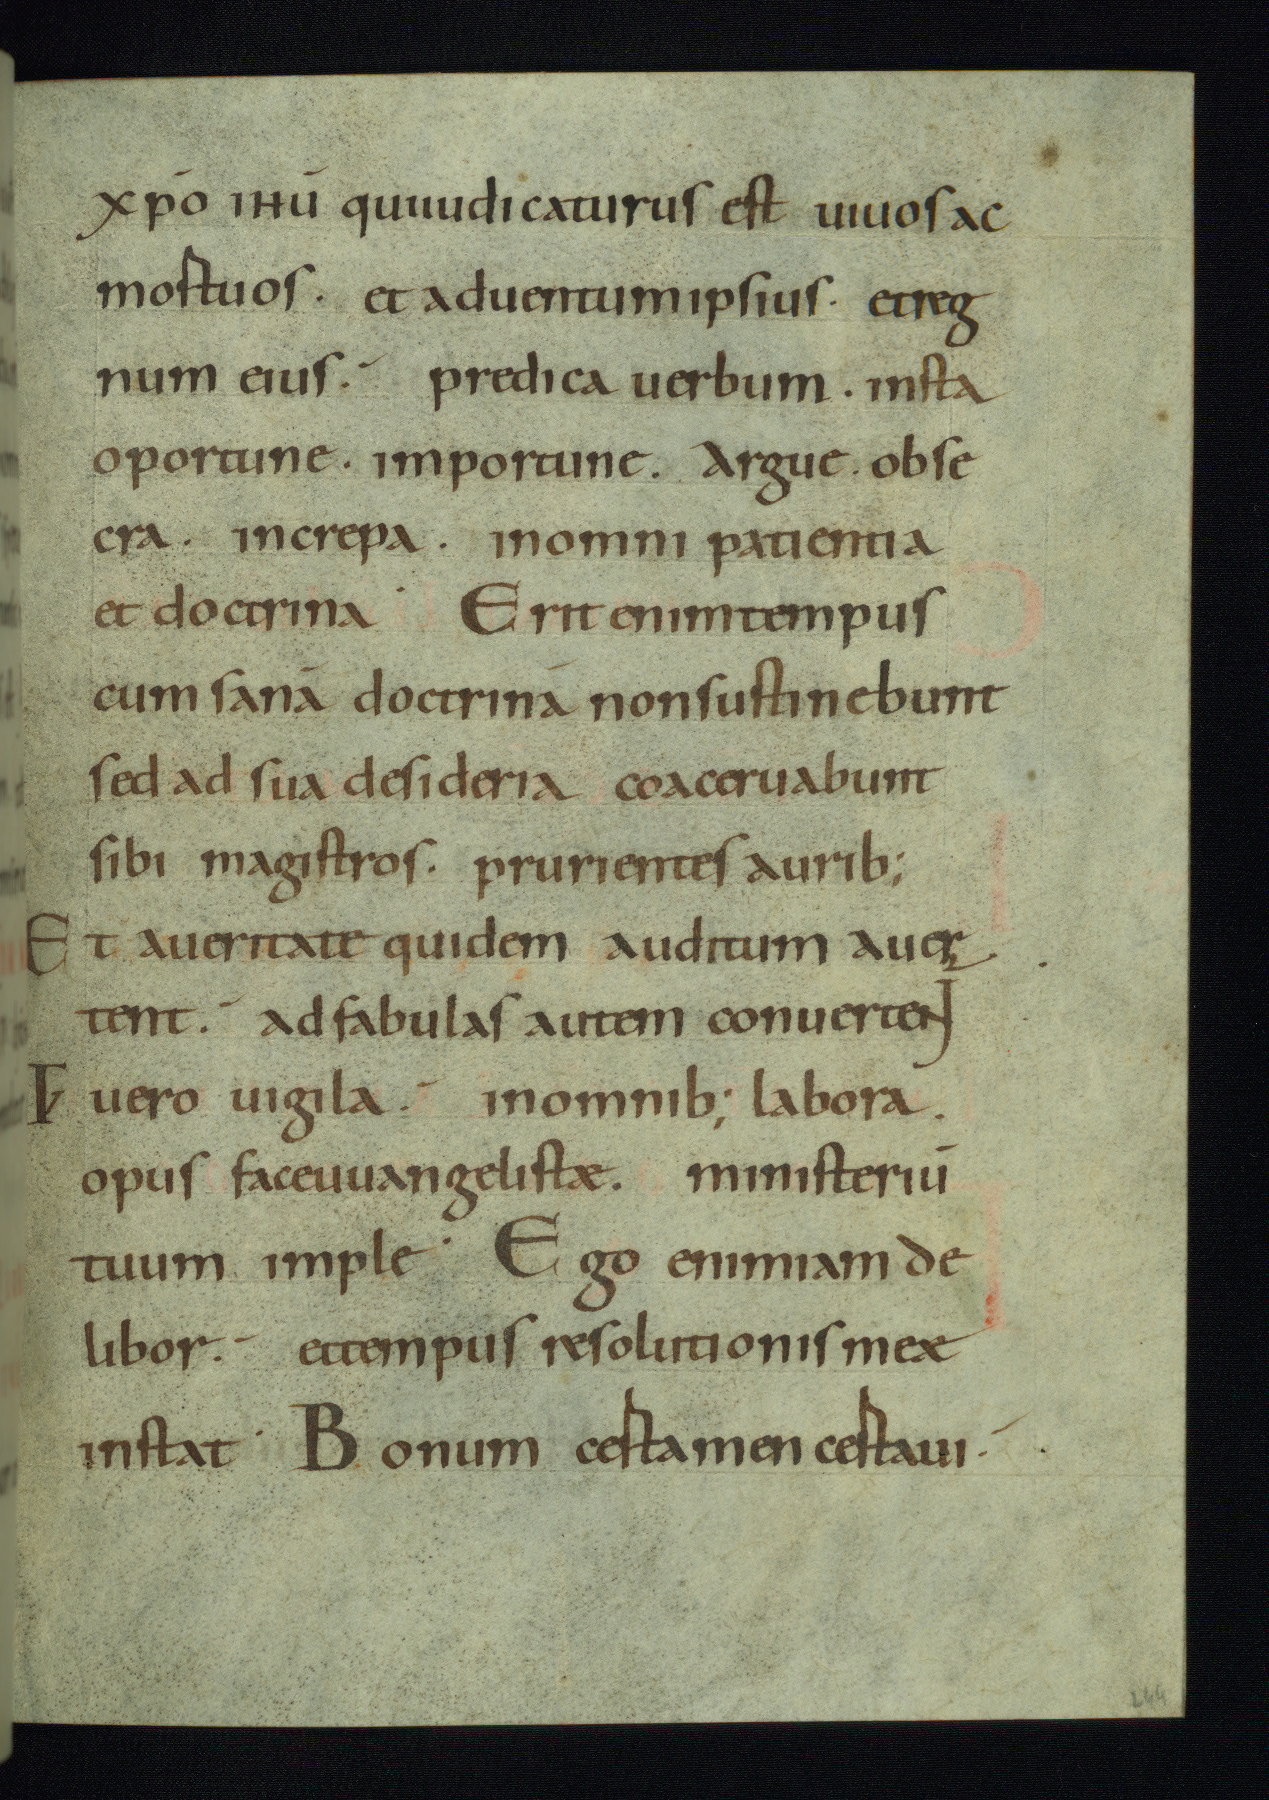 xp̄o ihū quiiudicaturus est uiuos ac
mortuos. et aduentum ipsius. et reg
num eius. predica uerbum. insta
oportune. importune. Argue. obse
cra. increpa. inomni patientia
et doctrina. Erit enim tempus
cum sanā doctrinā non sustinebunt
sed ad sua desideria coaceruabunt
sibi magistros. prurientes aurib;
Et aueritate quidem auditum auer
tent. ad fabulas autem conuertent
uero uigila. inomnib; labora.
opus face uuangelistæ. ministeriū
tuum imple. Ego enim iam de
libor. et tempus resolutionis meæ
instat. Bonum certamen certaui.
244